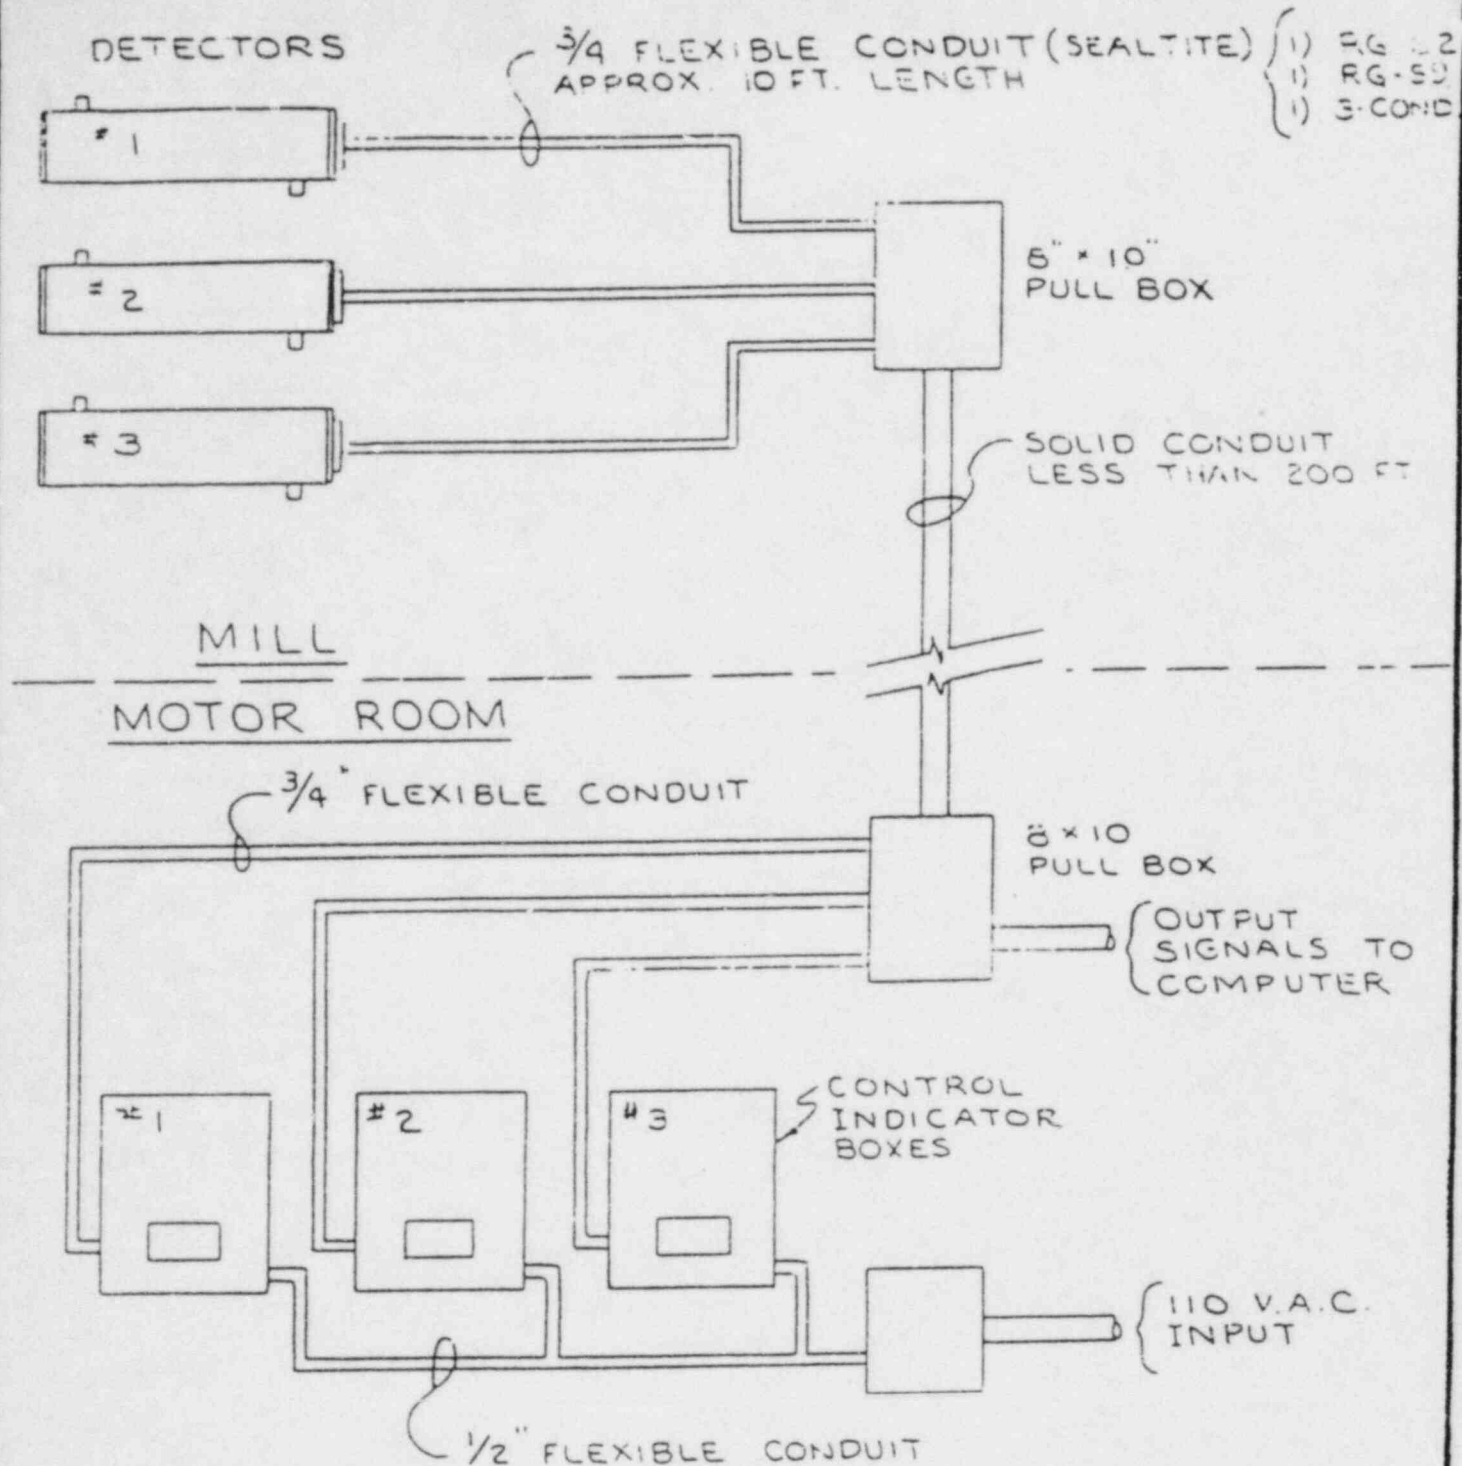 DETECTORS
3/4 FLEXIBLE CONDUIT (SEALTITE)
APPROX. 10 FT. LENGTH
1) RG
1) RG-
1) 3-COND
# 1
# 2
# 3
" × 10"
PULL BOX
SOLID CONDUIT
LESS THAN 200 FT
MILL
MOTOR ROOM
3/4" FLEXIBLE CONDUIT
8 × 10
PULL BOX
OUTPUT
SIGNALS TO
COMPUTER
#1
#2
#3
CONTROL
INDICATOR
BOXES
110 V.A.C.
INPUT
1/2" FLEXIBLE CONDUIT